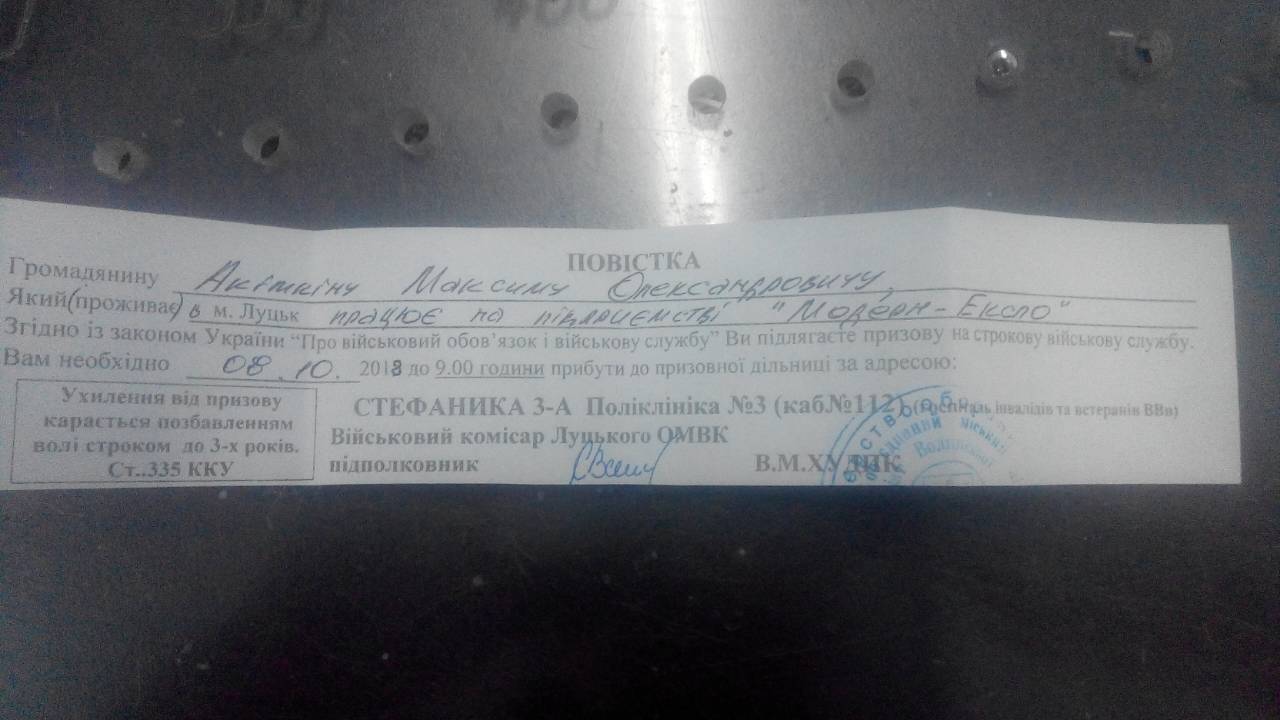 400
ПОВІСТКА
Громадянину Акімкіну Максиму Олександровичу,
Який (проживає) в м. Луцьк працює на підприємстві "Модерн-Експо"
Згідно із законом України “Про військовий обов’язок і військову службу” Ви підлягаєте призову на строкову військову службу.
Вам необхідно 08.10. 2018 до 9.00 години прибути до призовної дільниці за адресою:
Ухилення від призову
карається позбавленням
волі строком до 3-х років.
Ст..335 ККУ
СТЕФАНИКА 3-А Поліклініка №3 (каб.№112) (госпіталь інвалідів та ветеранів ВВв)
Військовий комісар Луцького ОМВК
підполковник В.М.ХУДИК